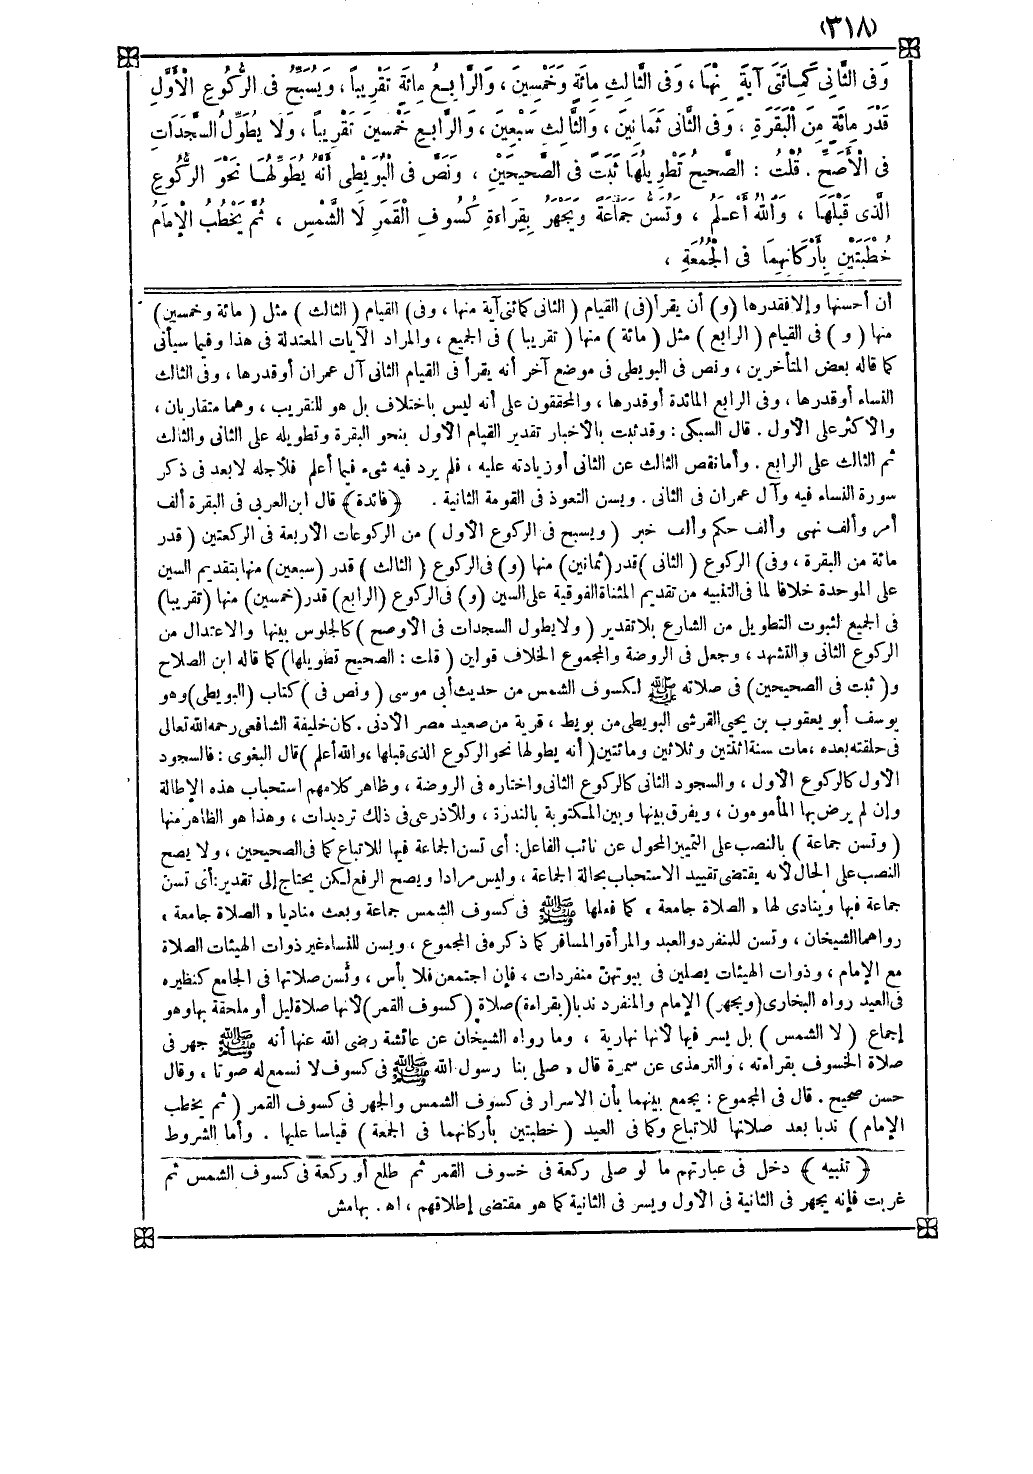 (٣١٨)
وَفى الثَّانِى كَمِائَتَىْ آيَةٍ مِنْهَا ، وَفى الثَّالِثِ مِائَةٍ وَخَمْسِينَ ، وَالرَّابِعُ مِائَةٍ تَقْرِيباً ، وَيُسَبِّحُ فى الرُّكُوعِ الْأَوَّلِ
قَدْرَ مِائَةٍ مِنَ الْبَقَرَةِ ، وَفى الثَّانى ثَمَانِينَ ، وَالثَّالِثِ سَبْعِينَ ، وَالرَّابِعِ خَمْسِينَ تَقْرِيباً ، وَلَا يُطَوِّلُ السَّجَدَاتِ
فى الْأَصَحِّ . قُلْتُ : الصَّحِيحُ تَطْوِيلُهَا ثَبَتَ فى الصَّحِيحَيْنِ ، وَنَصَّ فى الْبُوَيْطِى أَنَّهُ يُطَوِّلُهَا نَحْوَ الرُّكُوعِ
الَّذى قَبْلَهَا ، وَاللّهُ أَعْلَمُ ، وَتُسَنُّ جَمَاعَةً وَيَجْهَرُ بِقِرَاءَةِ كُسُوفِ الْقَمَرِ لَا الشَّمْسِ ، ثُمَّ يَخْطُبُ الْإِمَامُ
خُطْبَتَيْنِ بِأَرْكَانِهِمَا فى الْجُمُعَةِ ،
أن أحسنها وإلا فقدرها (و) أن يقرأ (فى) القيام ( الثانى كمائتى آية منها ، وفى) القيام ( الثالث ) مثل ( مائة وخمسين)
منها ( و ) فى القيام ( الرابع ) مثل ( مائة ) منها ( تقريبا ) فى الجميع ، والمراد الآيات المعتدلة فى هذا وفيما سيأتى
كما قاله بعض المتأخرين ، ونص فى البويطى فى موضع آخر أنه يقرأ فى القيام الثانى آل عمران أو قدرها ، وفى الثالث
النساء أو قدرها ، وفى الرابع المائدة أو قدرها ، والمحققون على أنه ليس باختلاف بل هو للتقريب ، وهما متقاربان ،
والأكثر على الأول . قال السبكى : وقد ثبت بالأخبار تقدير القيام الأول بنحو البقرة وتطويله على الثانى والثالث
ثم الثالث على الرابع . وأما نقص الثالث عن الثانى أو زيادته عليه ، فلم يرد فيه شىء فيما أعلم فلأجله لا بعد فى ذكر
سورة النساء فيه وآل عمران فى الثانى . ويسن التعوذ فى القومة الثانية . ﴿ فائدة ﴾ قال ابن العربى فى البقرة ألف
أمر وألف نهى وألف حكم وألف خبر ( ويسبح فى الركوع الأول ) من الركوعات الأربعة فى الركعتين ( قدر
مائة من البقرة ، وفى) الركوع ( الثانى ) قدر (ثمانين) منها (و) فى الركوع ( الثالث ) قدر (سبعين) منها بتقديم السين
على الموحدة خلافا لما فى التنبيه من تقديم المثناة الفوقية على السين (و) فى الركوع (الرابع) قدر (خمسين) منها (تقريبا)
فى الجميع لثبوت التطويل من الشارع بلا تقدير ( ولا يطول السجدات فى الأوصح ) كالجلوس بينها والاعتدال من
الركوع الثانى والتشهد ، وجعل فى الروضة والمجموع الخلاف قولين ( قلت : الصحيح تطويلها) كما قاله ابن الصلاح
و( ثبت فى الصحيحين) فى صلاته ﷺ لكسوف الشمس من حديث أبى موسى ( ونص فى ) كتاب (البويطى) وهو
يوسف أبو يعقوب بن يحيى القرشى البويطى من بويط ، قرية من صعيد مصر الأدنى . كان خليفة الشافعى رحمه الله تعالى
فى حلقته بعده ، مات سنة اثنتين وثلاثين ومائتين ( أنه يطولها نحو الركوع الذى قبلها ، والله أعلم ) قال البغوى : فالسجود
الأول كالركوع الأول ، والسجود الثانى كالركوع الثانى واختاره فى الروضة ، وظاهر كلامهم استحباب هذه الإطالة
وإن لم يرض بها المأمومون ، ويفرق بينها وبين المكتوبة بالندرة ، وللأذرعى فى ذلك ترديدات ، وهذا هو الظاهر منها
( وتسن جماعة ) بالنصب على التمييز المحول عن نائب الفاعل : أى تسن الجماعة فيها للاتباع كما فى الصحيحين ، ولا يصح
النصب على الحال لأنه يقتضى تقييد الاستحباب بحالة الجماعة ، وليس مرادا ويصح الرفع لكن يحتاج إلى تقدير : أى تسن
جماعة فيها وينادى لها « الصلاة جامعة » كما فعلها ﷺ فى كسوف الشمس جماعة وبعث مناديا « الصلاة جامعة »
رواهما الشيخان ، وتسن للمنفرد والعبد والمرأة والمسافر كما ذكره فى المجموع ، ويسن للنساء غير ذوات الهيئات الصلاة
مع الإمام ، وذوات الهيئات يصلين فى بيوتهن منفردات ، فإن اجتمعن فلا بأس ، وتُسن صلاتها فى الجامع كنظيره
فى العيد رواه البخارى (ويجهر) الإمام والمنفرد ندبا (بقراءة) صلاة (كسوف القمر) لأنها صلاة ليل أو ملحقة بها وهو
إجماع ( لا الشمس ) بل يسر فيها لأنها نهارية ، وما رواه الشيخان عن عائشة رضى الله عنها أنه ﷺ جهر فى
صلاة الخسوف بقراءته ، والترمذى عن سمرة قال « صلى بنا رسول الله ﷺ فى كسوف لا نسمع له صوتا » وقال
حسن صحيح . قال فى المجموع : يجمع بينهما بأن الاسرار فى كسوف الشمس والجهر فى كسوف القمر ( ثم يخطب
الإمام ) ندبا بعد صلاتها للاتباع وكما فى العيد ( خطبتين بأركانهما فى الجمعة ) قياسا عليها . وأما الشروط
﴿ تنبيه ﴾ دخل فى عبارتهم ما لو صلى ركعة فى خسوف القمر ثم طلع أو ركعة فى كسوف الشمس ثم
غربت فإنه يجهر فى الثانية فى الأول ويسر فى الثانية كما هو مقتضى إطلاقهم ، اه . بهامش